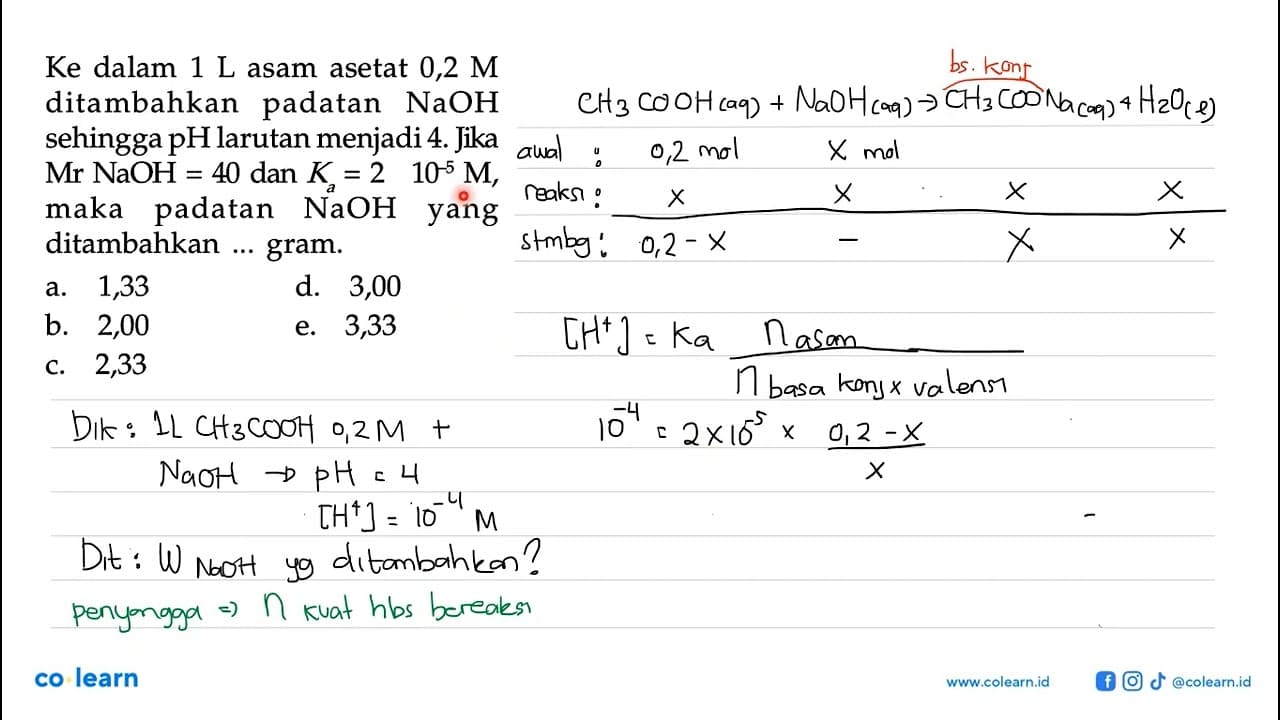 Ke dalam 1 L asam asetat 0,2 M
ditambahkan padatan NaOH
sehingga pH larutan menjadi 4. Jika
Mr NaOH = 40 dan Ka = 2 10⁻⁵ M,
maka padatan NaOH yang
ditambahkan ... gram.
a. 1,33
b. 2,00
c. 2,33
d. 3,00
e. 3,33
Dik : 1L CH3COOH 0,2 M +
NaOH → pH = 4
[H⁺] = 10⁻⁴ M
Dit : W NaOH yg ditambahkan?
penyangga => n kuat hbs bereaksi
bs. konj
CH3COOH(aq) + NaOH(aq) → CH3COONa(aq) + H2O(l)
awal : 0,2 mol x mol
reaksi : x x x x
stmbg : 0,2 - x - x x
[H⁺] = Ka n asam
n basa konj x valensi
10⁻⁴ = 2 x 10⁻⁵ x 0,2 - x
x
-
co learn
www.colearn.id
@colearn.id